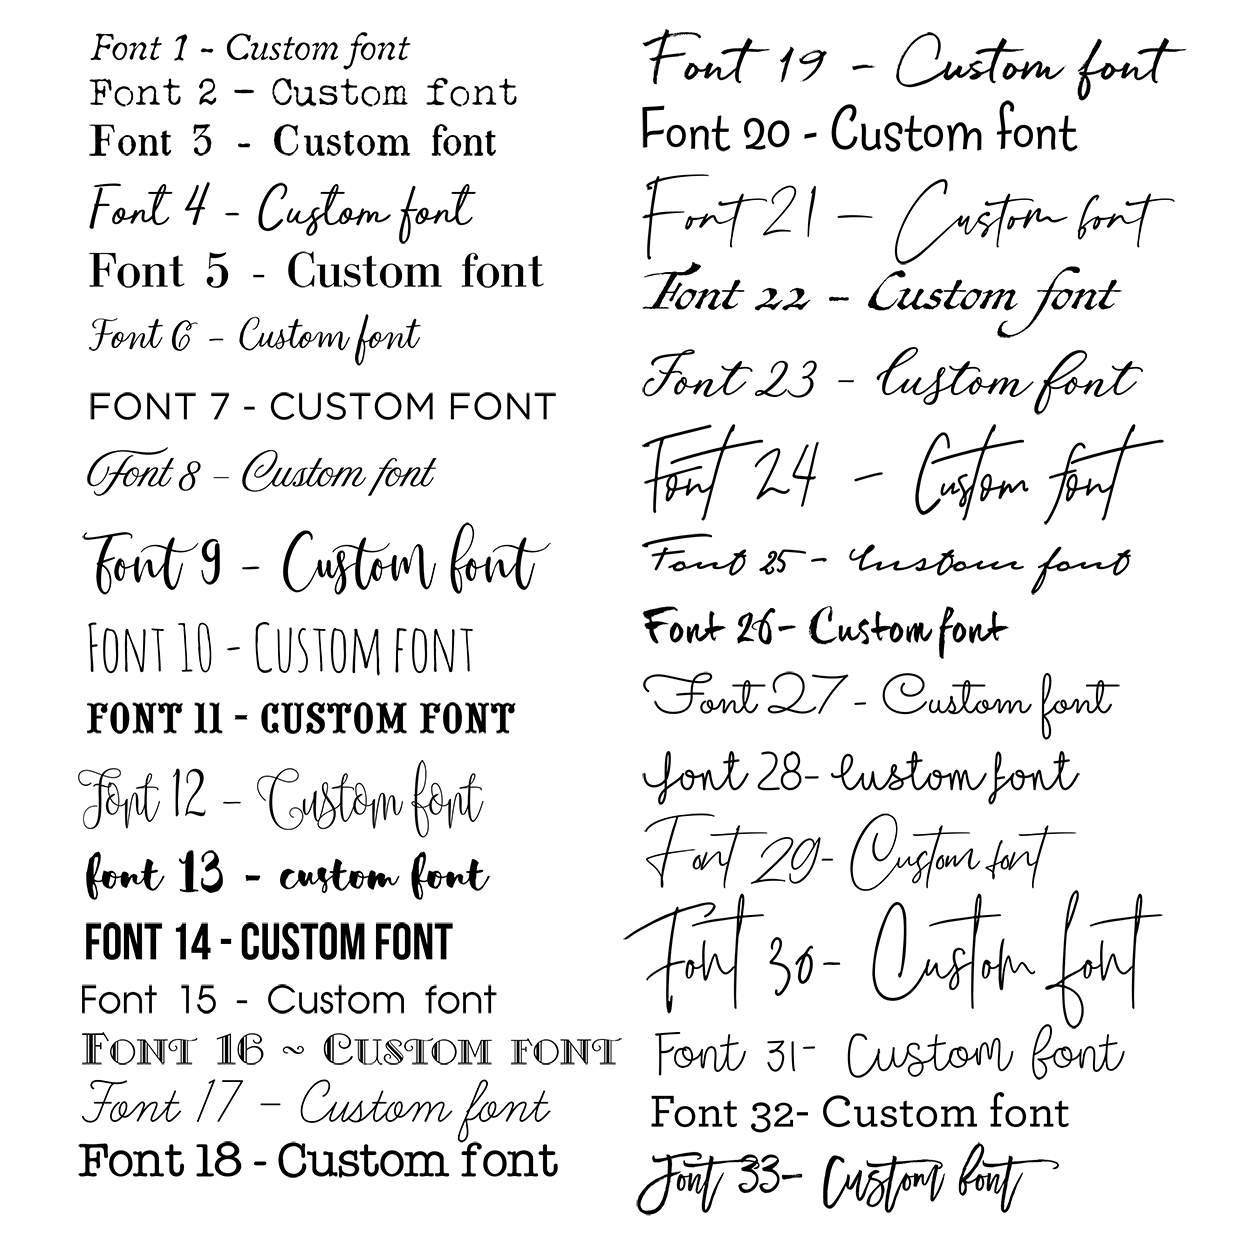 Font 1 - Custom font
Font 2 - Custom font
Font 3 - Custom font
Font 4 - Custom font
Font 5 - Custom font
Font 6 - Custom font
FONT 7 - CUSTOM FONT
Font 8 - Custom font
Font 9 - Custom font
FONT 10 - CUSTOM FONT
FONT 11 - CUSTOM FONT
Font 12 - Custom font
font 13 - custom font
FONT 14 - CUSTOM FONT
Font 15 - Custom font
FONT 16 ~ CUSTOM FONT
Font 17 - Custom font
Font 18 - Custom font
Font 19 - Custom font
Font 20 - Custom font
Font 21 - Custom font
Font 22 - Custom font
Font 23 - Custom font
Font 24 - Custom font
Font 25 - Custom font
Font 26- Custom font
Font 27 - Custom font
Font 28- Custom font
Font 29- Custom font
Font 30- Custom font
Font 31- Custom font
Font 32- Custom font
Font 33- Custom font